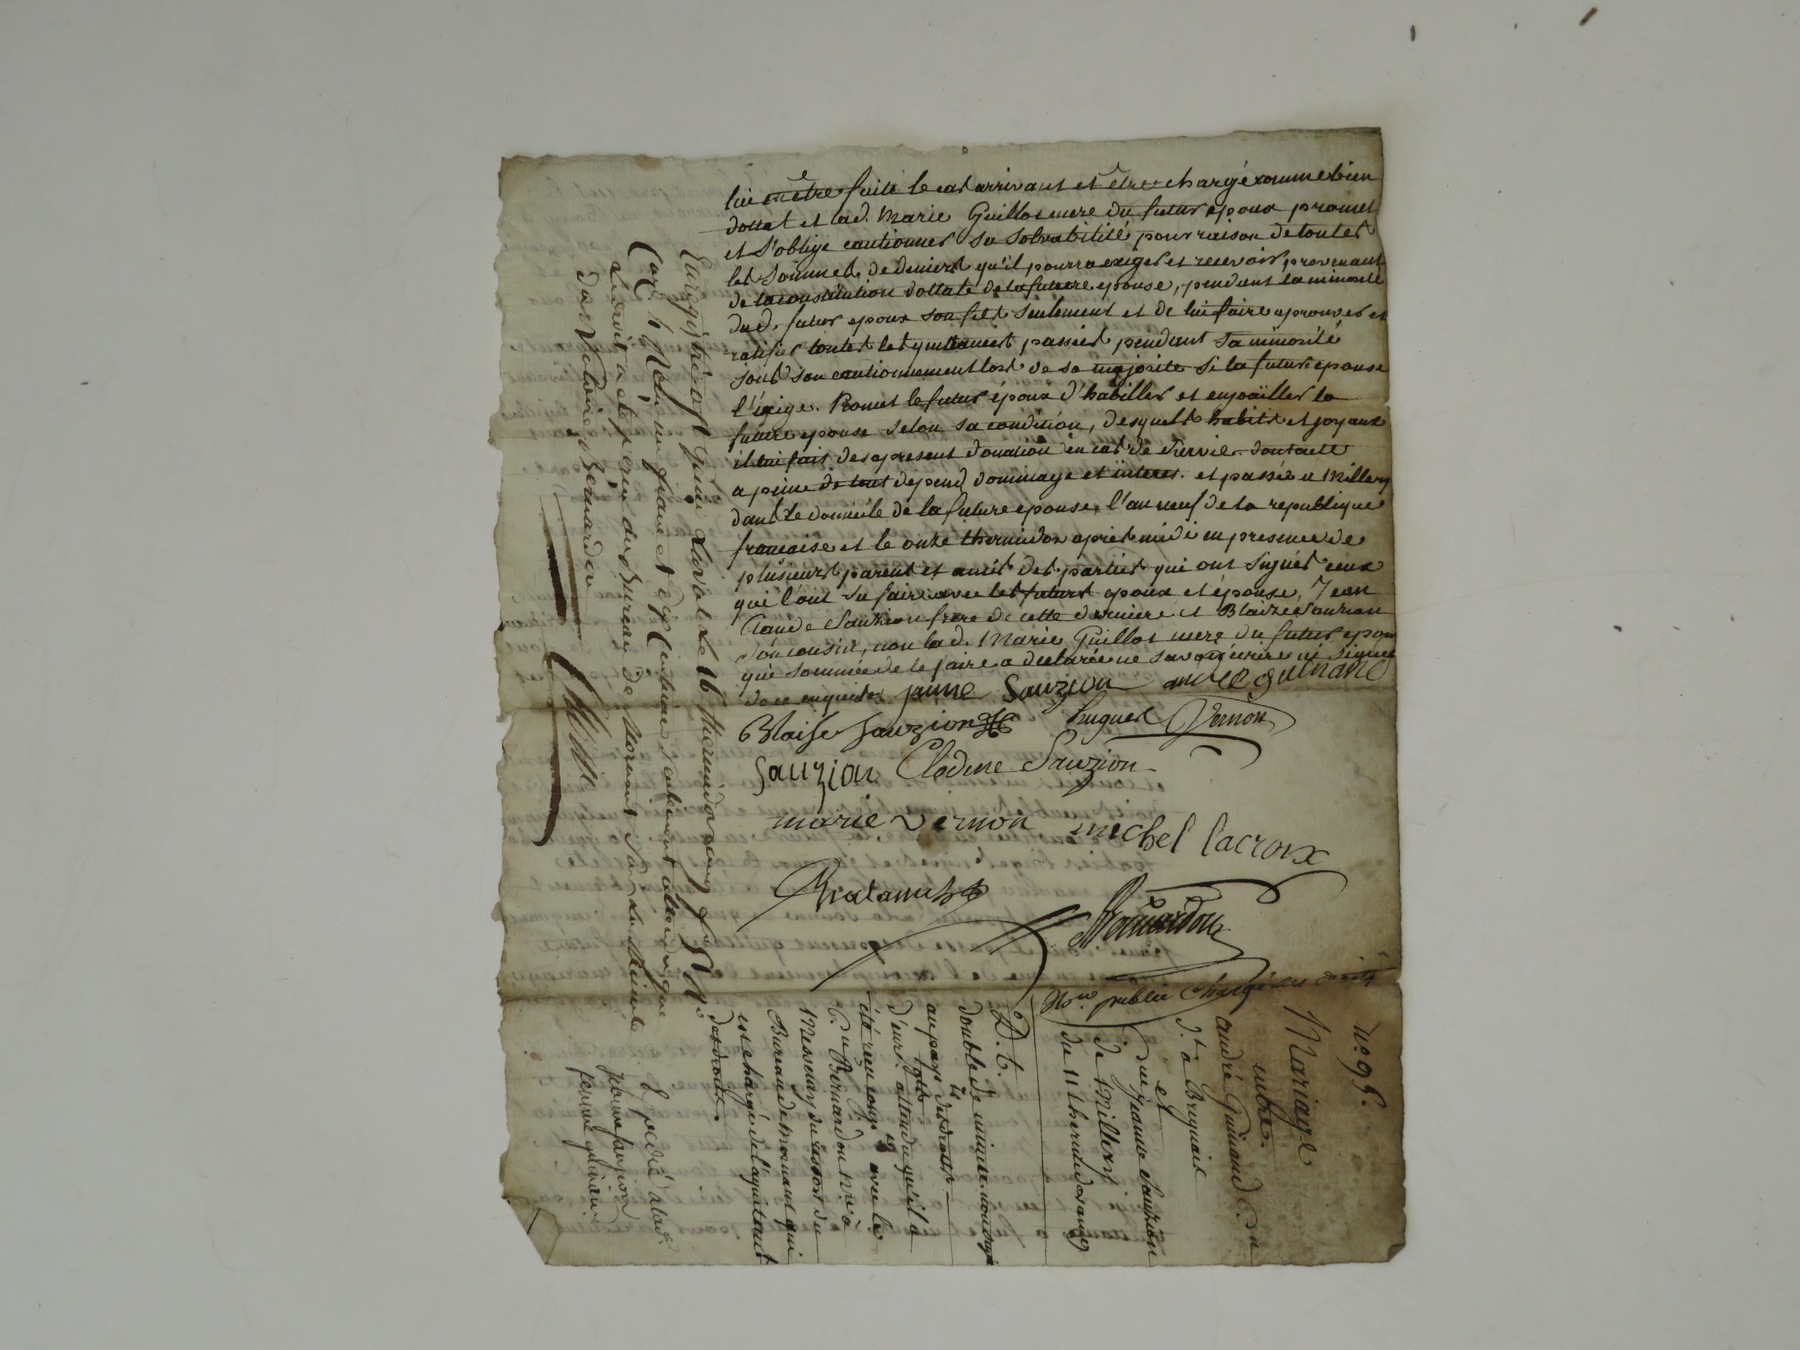 lui être faite le cas arrivant et être chargé comme bien
dottat et lad. Marie Guillot mere du futur epoux promet
et s'oblige cautionner sa solvabilité pour raison de toutes
les sommes de deniers qu'il pourra exiger et recevoir provenant
de la constitution dottale de la future epouse, pendant la minorité
dud. futur epoux son fils seulement et de lui faire aprouver et
ratifier toutes les quittances passées pendant sa minorité
sous son cautionnement lors de sa majorité si la future epouse
l'exige. Promet le futur époux d'habiller et enjoailler la
future epouse selon sa condition, desquels habits et joyaux
il lui fait des apresent donation en cas de survie. dont acte
a peine de tout depend dommage et interes. et passée a Millery
dans le domicile de la future epouse, l'an neuf de la republique
francaise et le onze thermidor après midi en presence de
plusieurs parents et amis des parties qui ont signés ceux
qui l'ont su faire avec les futurs epoux et épouse, Jean
Claude Sauzion frere de cette derniere et Blaize Sauzion
son cousin, non lad. Marie Guillot mere du futur epoux
qui sommée de le faire a declarée ne savoir écrire ni signer
de ce enquise. jeanne Sauzion andré guinand
Blaise Sauzion hugues Vernon
Sauzion Clodine Sauzion
marie vernon michel lacroix
Bernardon
No.re public chargé des droits
Enregistré à St Genis Laval le 16 thermidor an 9 f°
Case h Reçu un franc et dix Centimes Subvention attendu que
le droit a été perçu du Bureau de Mornant Sur la Minute
par Notaire Bernardon
n.° 95.
Mariage
entre
andré Guinand C.en
d.t a Brignais
et
C.ne Jeanne Sauzion
de Millery
du 11 thermidor an 9
D. t.
double de minute
au pays des droits
d'enr.t attendu qu'il a
été reçu avec le
C.en Bernardon N.re à
Messimy du ressort du
Bureau de Mornant qui
est chargé de l'aquitement
des droits.
Expedié a lad.
jeanne sauzion
femme guinand